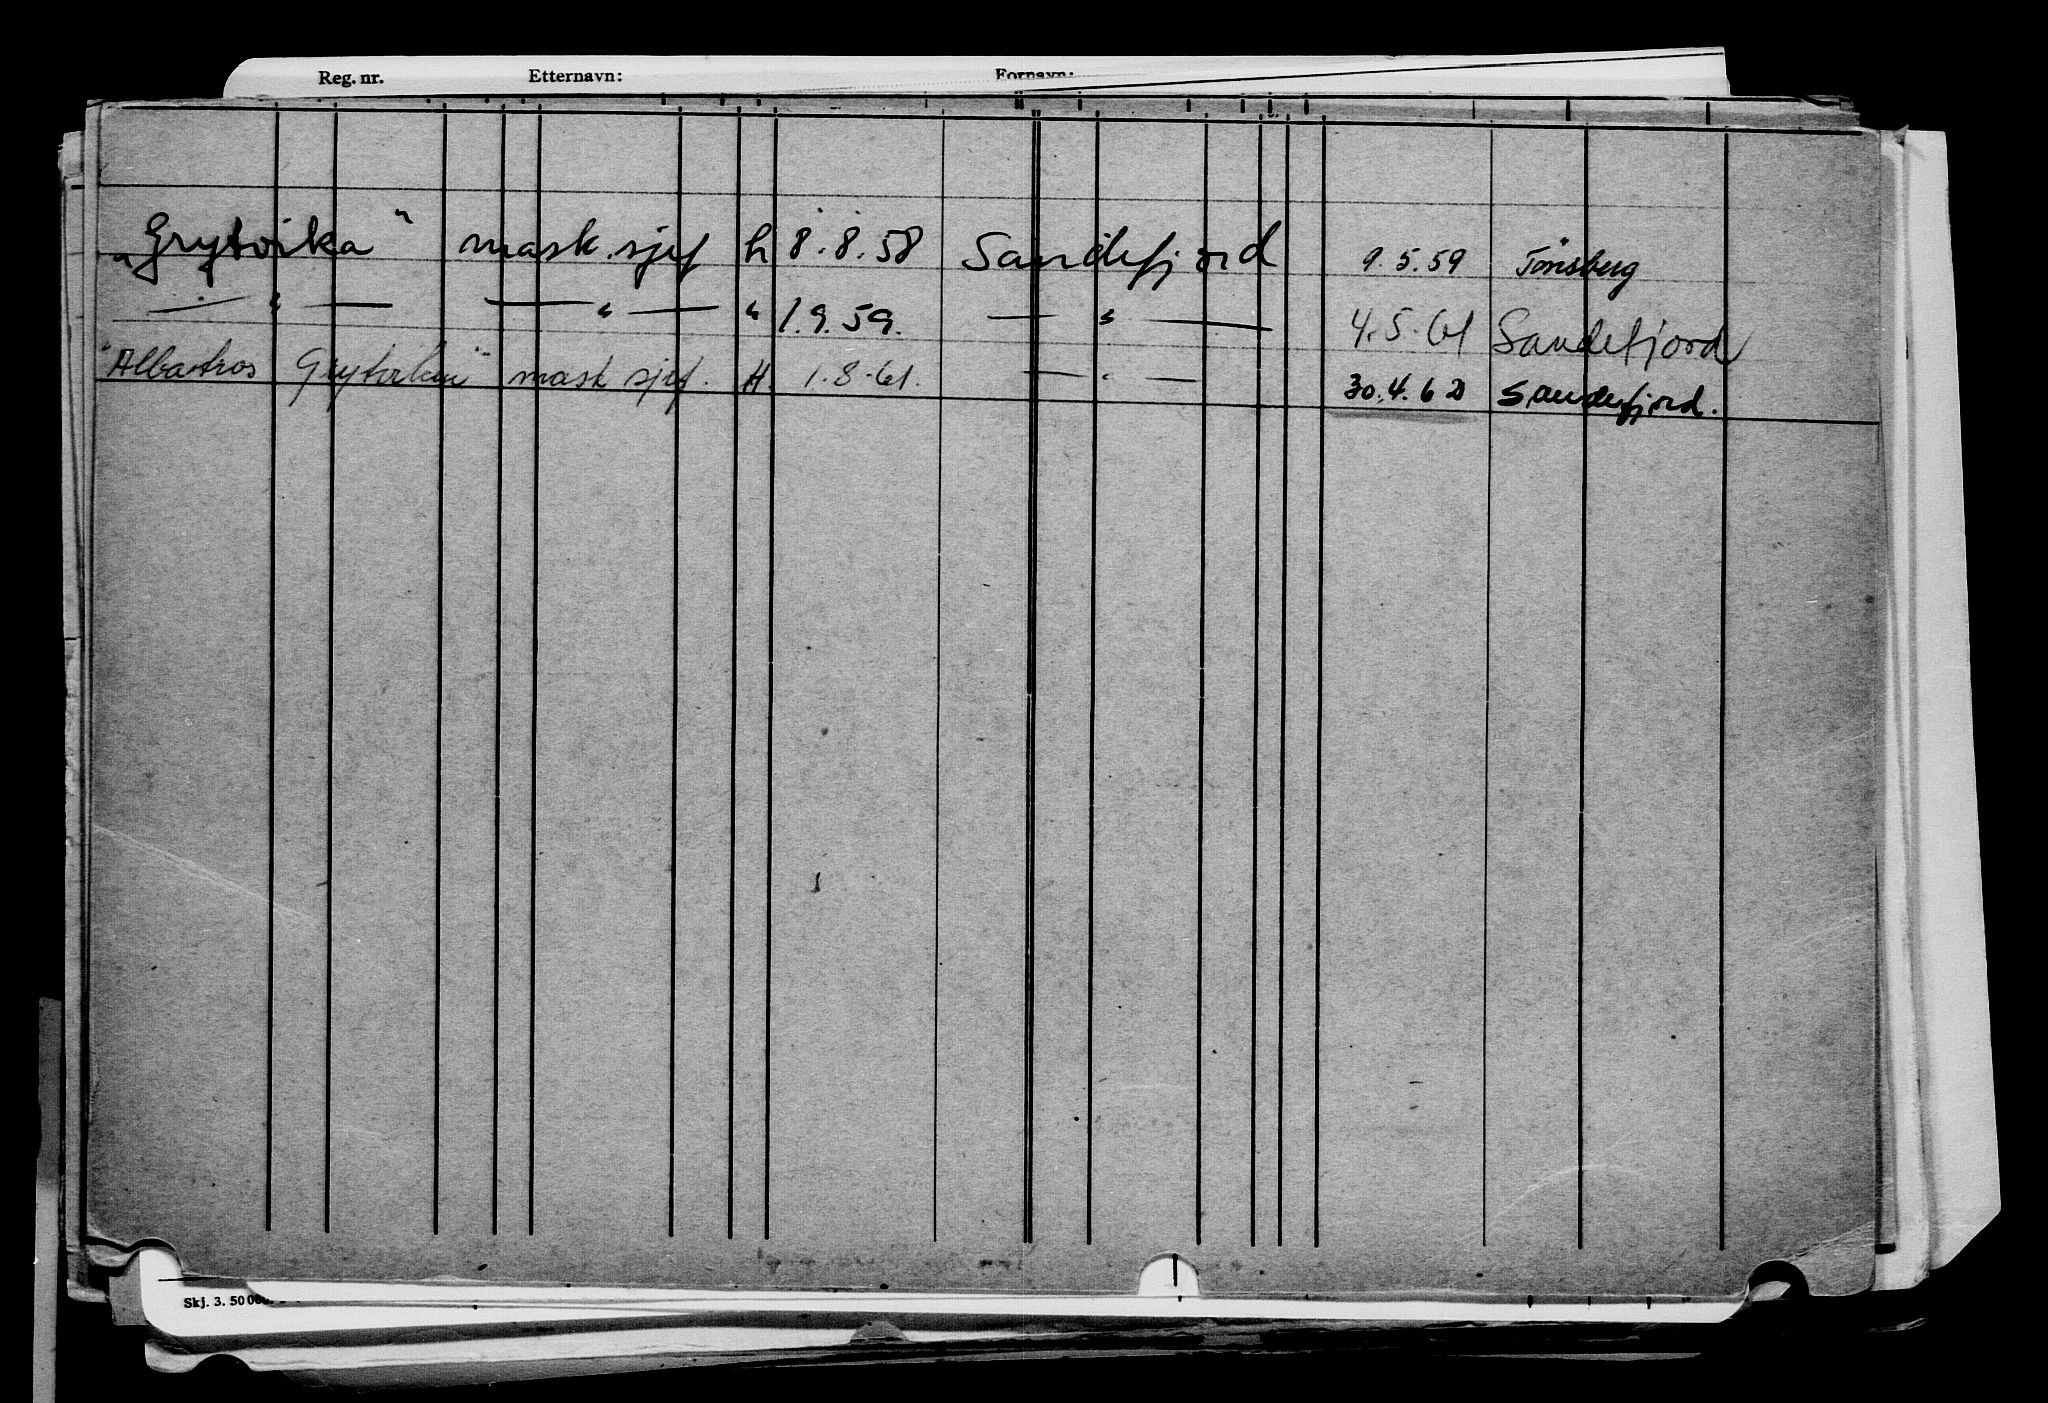 Reg. nr. Etternavn: Fornavn:
"Grytvika" mask.sjef h 8.8.58 Sandefjord 9.5.59 Tönsberg
— " — — " — " 1.9.59. — " — 4.5.61 Sandefjord
"Albatros Grytviken" mask sjef. H. 1.8.61. — " — 30.4.62 Sandefjord.
Skj. 3. 50 000.